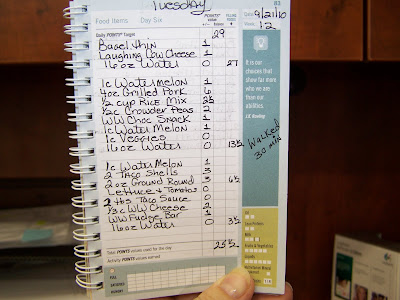 Tuesday
83
Food Items Day Six
POINTS® values
Date 9/21/10
12
Daily POINTS® Target 29
Bagel thin 1
Laughing Cow Cheese 1
16 oz Water 0 27
1c Watermelon 1
4oz Grilled Pork 6
1/2 cup Rice Mix 2½
1/2 c Crowder Peas 2
WW Choc Snack 1
1c Water Melon 1
1c Veggies 0
16oz Water 0 13½
1c Water Melon 1
2 Taco Shells 3
2 oz Ground Round 3 6½
Lettuce & Tomatoes 0
2 tbs Taco Sauce 0
1/3 c WW Cheese 2
WW Fudge Bar 1
16oz Water 0 3½
Total POINTS values used for the day 25½
Activity POINTS values earned
FULL
SATISFIED
HUNGRY
It is our
choices that
show far more
who we
are than our
abilities.
J.K. Rowling
Walked
30 min